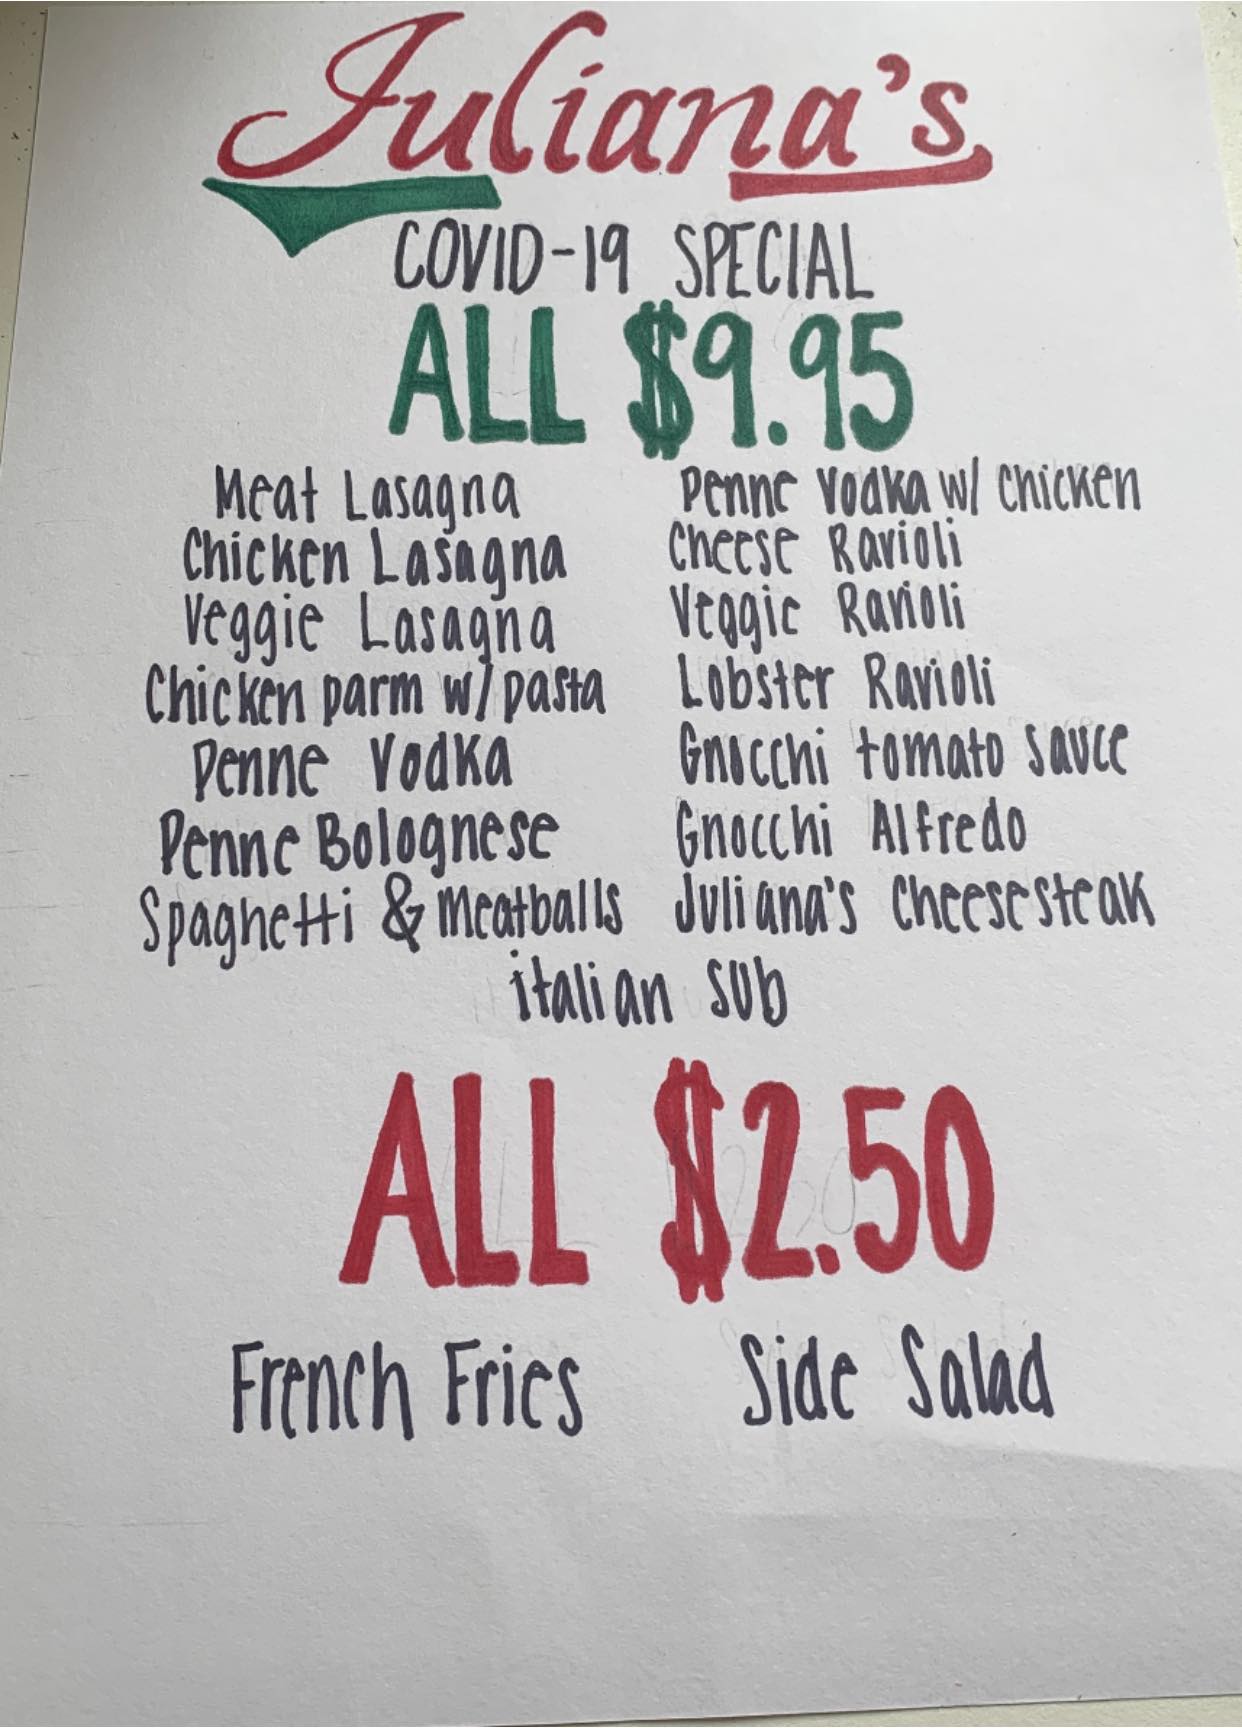 Juliana's
COVID-19 SPECIAL
ALL $9.95
Meat Lasagna
Chicken Lasagna
Veggie Lasagna
Chicken parm w/pasta
Penne Vodka
Penne Bolognese
Spaghetti & Meatballs
Penne Vodka w/ Chicken
Cheese Ravioli
Veggie Ravioli
Lobster Ravioli
Gnocchi tomato sauce
Gnocchi Alfredo
Juliana's Cheesesteak
italian sub
ALL $2.50
French Fries
Side Salad